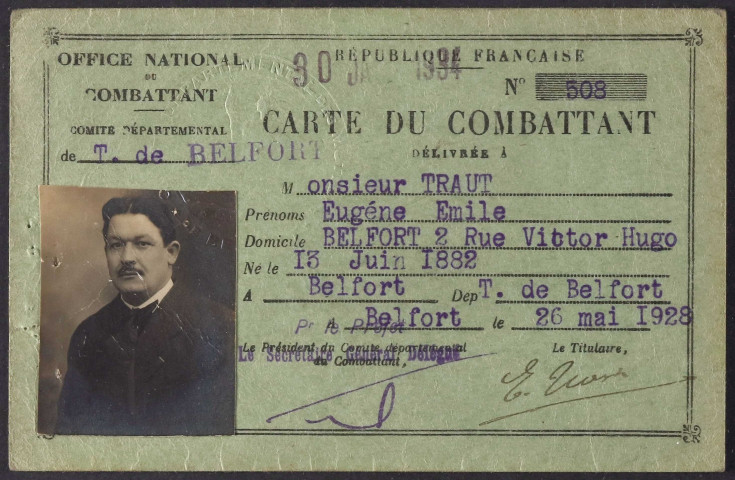 OFFICE NATIONAL
DU
COMBATTANT
COMITÉ DÉPARTEMENTAL
de T. de BELFORT
30 JA 1934
RÉPUBLIQUE FRANÇAISE
N° 508
CARTE DU COMBATTANT
DÉLIVRÉE À
Monsieur TRAUT
Prénoms Eugéne Emile
Domicile BELFORT 2 Rue Victor Hugo
Né le 13 Juin 1882
A Belfort Dep T. de Belfort
A Belfort le 26 mai 1928
Pr le Préfet
Le Président du Comité départemental
du Combattant,
Le Secrétaire Général Délégué
Le Titulaire,
E. Traut